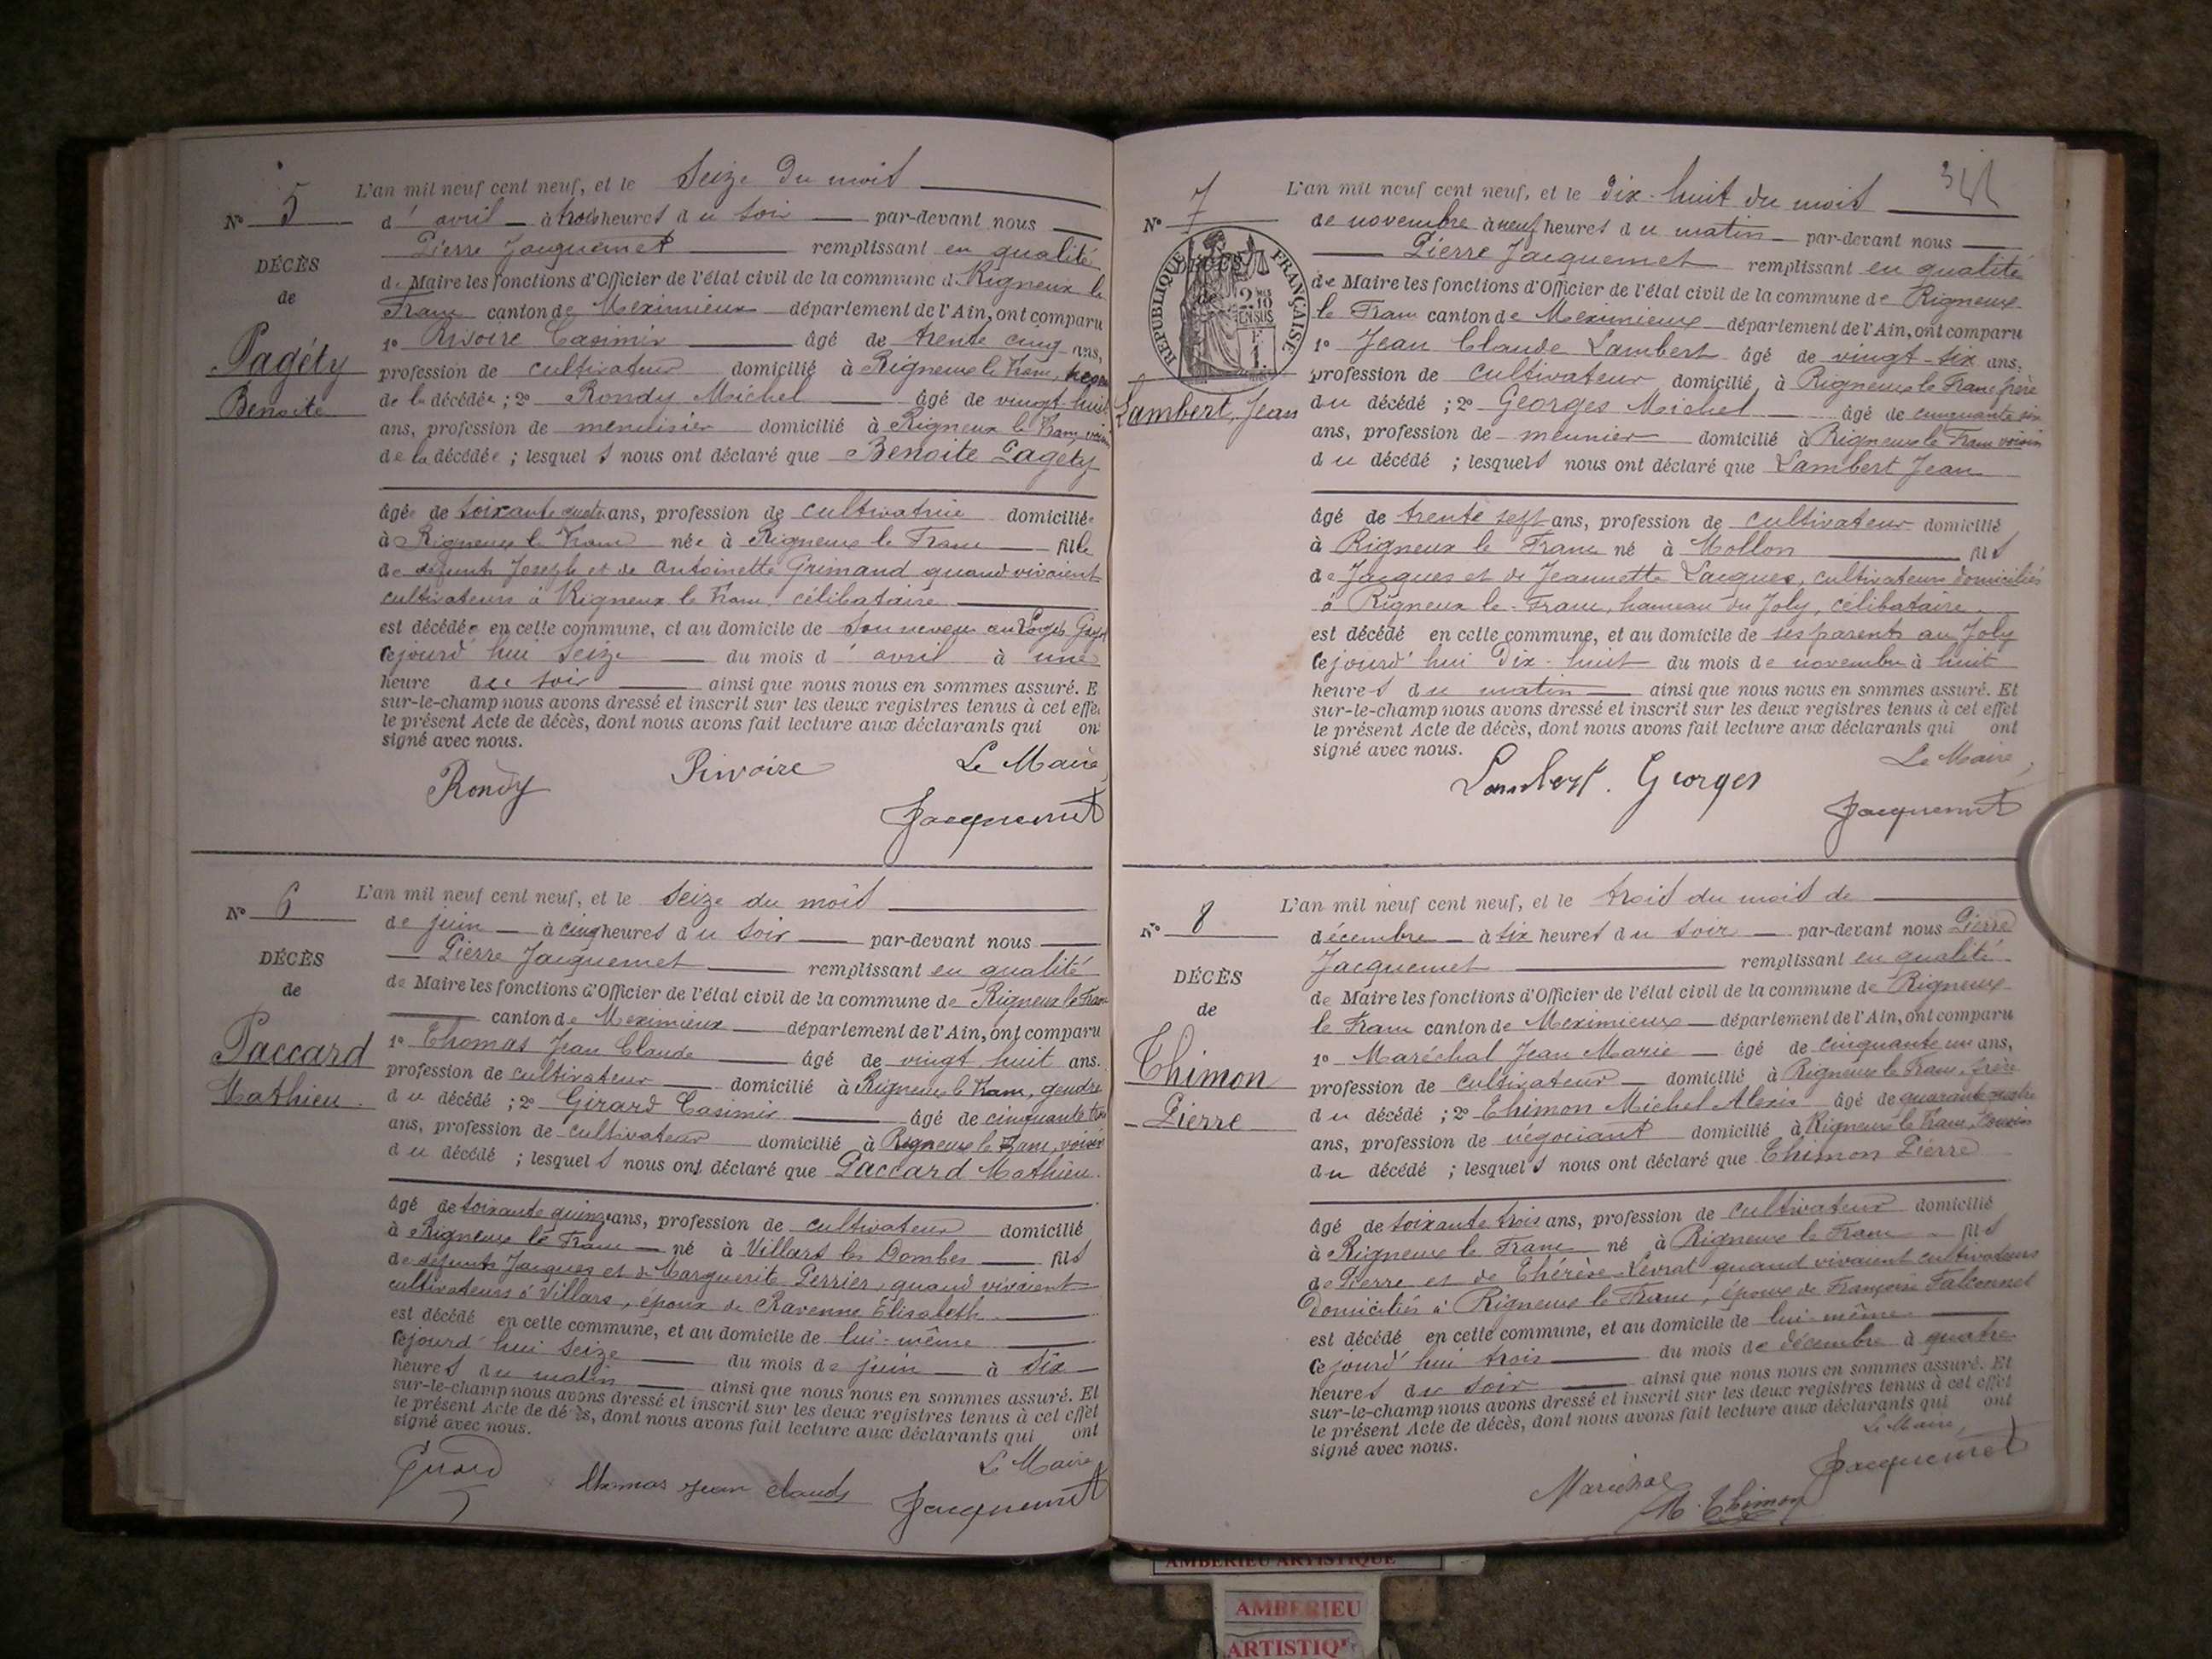 N° 5
DÉCÈS
de
Pagéty
Benoite
L'an mil neuf cent neuf, et le Seize du mois
d' avril à trois heures du soir par-devant nous
Pierre Jacquemet remplissant en qualité
de Maire les fonctions d'Officier de l'état civil de la commune de Rigneux le
Franc canton de Meximieux département de l'Ain, ont comparu
1° Rivoire Casimir âgé de trente cinq ans,
profession de cultivateur domicilié à Rigneux le Franc, neveu
de la décédée ; 2° Rondy Michel âgé de vingt huit
ans, profession de menuisier domicilié à Rigneux le Franc, voisin
de la décédée ; lesquels nous ont déclaré que Benoite Pagéty
âgée de soixante quatre ans, profession de cultivatrice domiciliée
à Rigneux le Franc née à Rigneux le Franc fille
de défunts Joseph et de Antoinette Grimand quand vivaient
cultivateurs à Rigneux le Franc, célibataire
est décédée en cette commune, et au domicile de son neveu
cejourd'hui seize du mois d' avril à une
heure du soir ainsi que nous nous en sommes assuré. E
sur-le-champ nous avons dressé et inscrit sur les deux registres tenus à cet effe
le présent Acte de décès, dont nous avons fait lecture aux déclarants qui on
signé avec nous.
Le Maire,
Rondy Rivoire Jacquemet
N° 6
DÉCÈS
de
Paccard
Mathieu
L'an mil neuf cent neuf, et le Seize du mois
de juin à cinq heures du soir par-devant nous
Pierre Jacquemet remplissant en qualité
de Maire les fonctions d'Officier de l'état civil de la commune de Rigneux le Franc
canton de Meximieux département de l'Ain, ont comparu
1° Thomas Jean Claude âgé de vingt huit ans.
profession de cultivateur domicilié à Rigneux le Franc, gendre
du décédé ; 2° Girard Casimir âgé de cinquante trois
ans, profession de cultivateur domicilié à Rigneux le Franc, voisin
du décédé ; lesquels nous ont déclaré que Paccard Mathieu.
âgé de soixante quinze ans, profession de cultivateur domicilié
à Rigneux le Franc né à Villars les Dombes fils
de défunts Jacques et de Marguerite Perrier, quand vivaient
cultivateurs à Villars, époux de Ravenne Elisabeth.
est décédé en cette commune, et au domicile de lui-même
cejourd'hui seize du mois de juin à six
heures du matin ainsi que nous nous en sommes assuré. Et
sur-le-champ nous avons dressé et inscrit sur les deux registres tenus à cet effet
le présent Acte de décès, dont nous avons fait lecture aux déclarants qui ont
signé avec nous.
Le Maire,
Girard thomas jean claude Jacquemet
N° 7
RÉPUBLIQUE FRANÇAISE
DÉCÈS
de
Lambert, Jean
L'an mil neuf cent neuf, et le dix-huit du mois
de novembre à neuf heures du matin par-devant nous
Pierre Jacquemet remplissant en qualité
de Maire les fonctions d'Officier de l'état civil de la commune de Rigneux
le Franc canton de Meximieux département de l'Ain, ont comparu
1° Jean Claude Lambert âgé de vingt-six ans.
profession de cultivateur domicilié à Rigneux le Franc frère
du décédé ; 2° Georges Michel âgé de cinquante six
ans, profession de meunier domicilié à Rigneux le Franc voisin
du décédé ; lesquels nous ont déclaré que Lambert Jean
âgé de trente sept ans, profession de cultivateur domicilié
à Rigneux le Franc né à Mollon fils
de Jacques et de Jeannette Lacques, cultivateurs domiciliés
à Rigneux le-Franc, hameau du Joly, célibataire.
est décédé en cette commune, et au domicile de ses parents au Joly
cejourd'hui Dix-huit du mois de novembre à huit
heures du matin ainsi que nous nous en sommes assuré. Et
sur-le-champ nous avons dressé et inscrit sur les deux registres tenus à cet effet
le présent Acte de décès, dont nous avons fait lecture aux déclarants qui ont
signé avec nous.
Le Maire,
Lambert. Georges Jacquemet
N° 8
DÉCÈS
de
Thimon
Pierre
L'an mil neuf cent neuf, et le trois du mois de
décembre à six heures du soir par-devant nous Pierre
Jacquemet remplissant en qualité
de Maire les fonctions d'Officier de l'état civil de la commune de Rigneux
le Franc canton de Meximieux département de l'Ain, ont comparu
1° Maréchal Jean Marie âgé de cinquante un ans,
profession de cultivateur domicilié à Rigneux le Franc, frère
du décédé ; 2° Thimon Michel Alexis âgé de quarante quatre
ans, profession de négociant domicilié à Rigneux le Franc, cousin
du décédé ; lesquels nous ont déclaré que Thimon Pierre
âgé de soixante trois ans, profession de cultivateur domicilié
à Rigneux le Franc né à Rigneux le Franc fils
de Pierre et de Thérèse Levrat quand vivaient cultivateurs
Domiciliés à Rigneux le Franc, époux de Françoise Falconnet
est décédé en cette commune, et au domicile de lui-même.
cejourd'hui trois du mois de décembre à quatre
heures du soir ainsi que nous nous en sommes assuré. Et
sur-le-champ nous avons dressé et inscrit sur les deux registres tenus à cet effet
le présent Acte de décès, dont nous avons fait lecture aux déclarants qui ont
signé avec nous.
Le Maire,
Maréchal M. Thimon Jacquemet
AMBERIEU ARTISTIQUE
AMBERIEU
ARTISTIQU